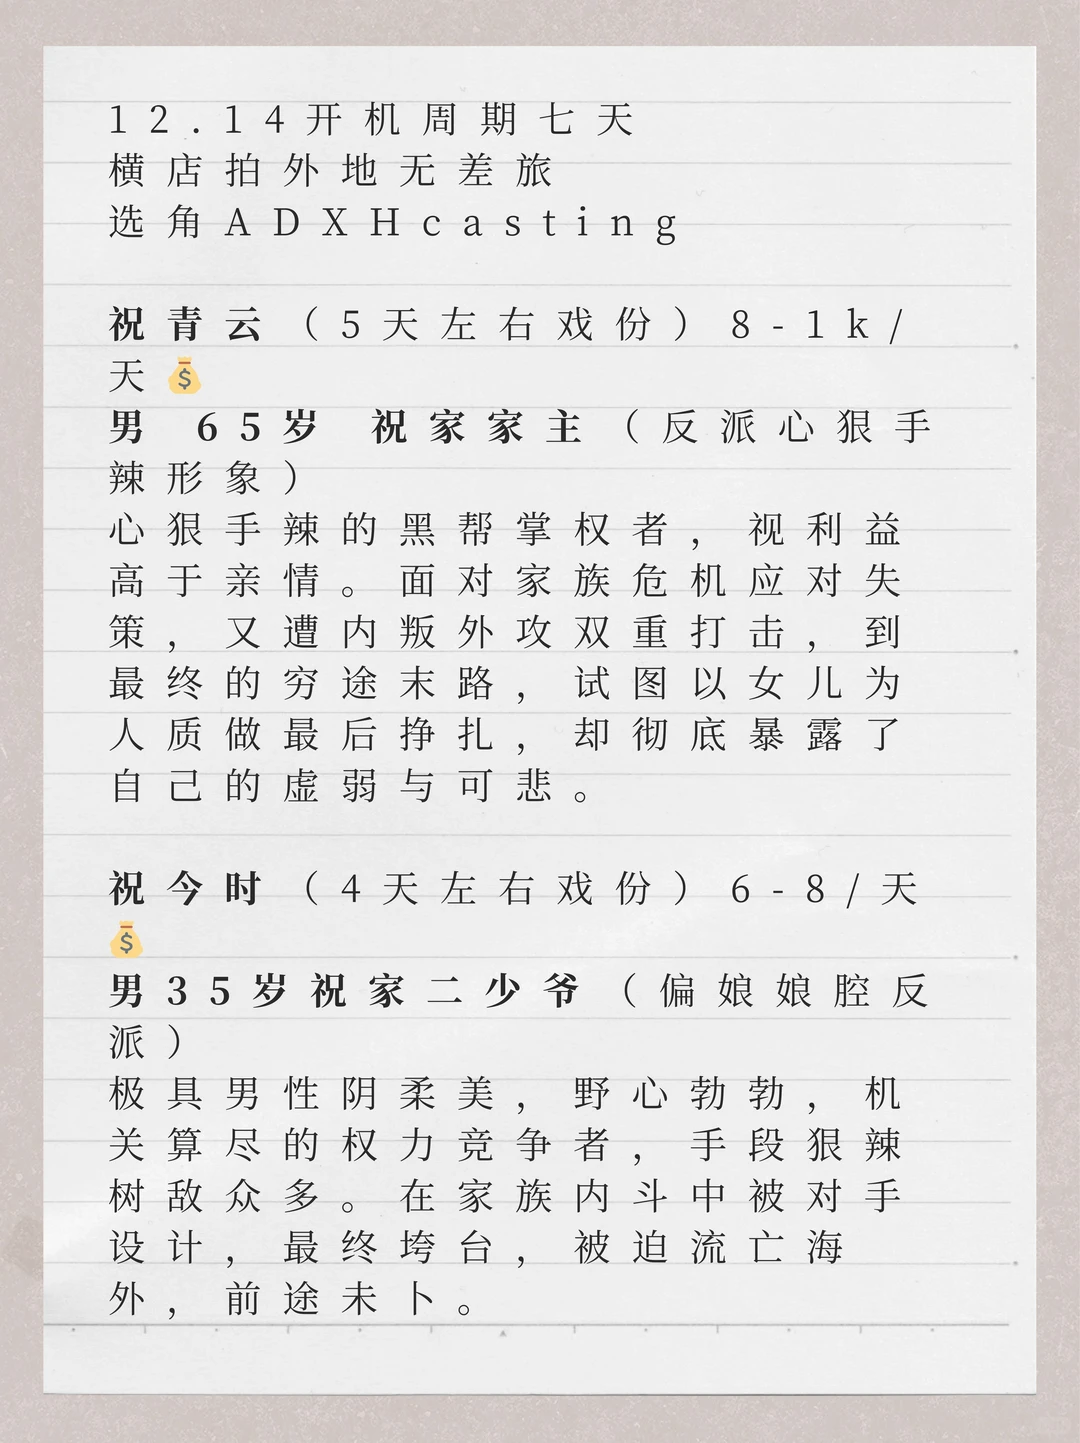 12.14开机周期七天
横店拍外地无差旅
选角ADXHcasting
祝青云（5天左右戏份）8-1k/
天💰
男 65岁 祝家家主（反派心狠手
辣形象）
心狠手辣的黑帮掌权者，视利益
高于亲情。面对家族危机应对失
策，又遭内叛外攻双重打击，到
最终的穷途末路，试图以女儿为
人质做最后挣扎，却彻底暴露了
自己的虚弱与可悲。
祝今时（4天左右戏份）6-8/天
💰
男35岁祝家二少爷（偏娘娘腔反
派）
极具男性阴柔美，野心勃勃，机
关算尽的权力竞争者，手段狠辣
树敌众多。在家族内斗中被对手
设计，最终垮台，被迫流亡海
外，前途未卜。